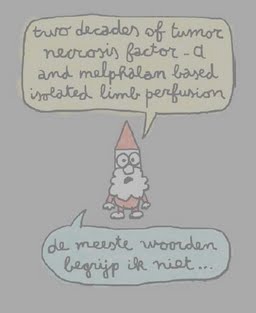 two decades of tumor
necrosis factor - α
and melphalan based
isolated limb perfusion
de meeste woorden
begrijp ik niet...